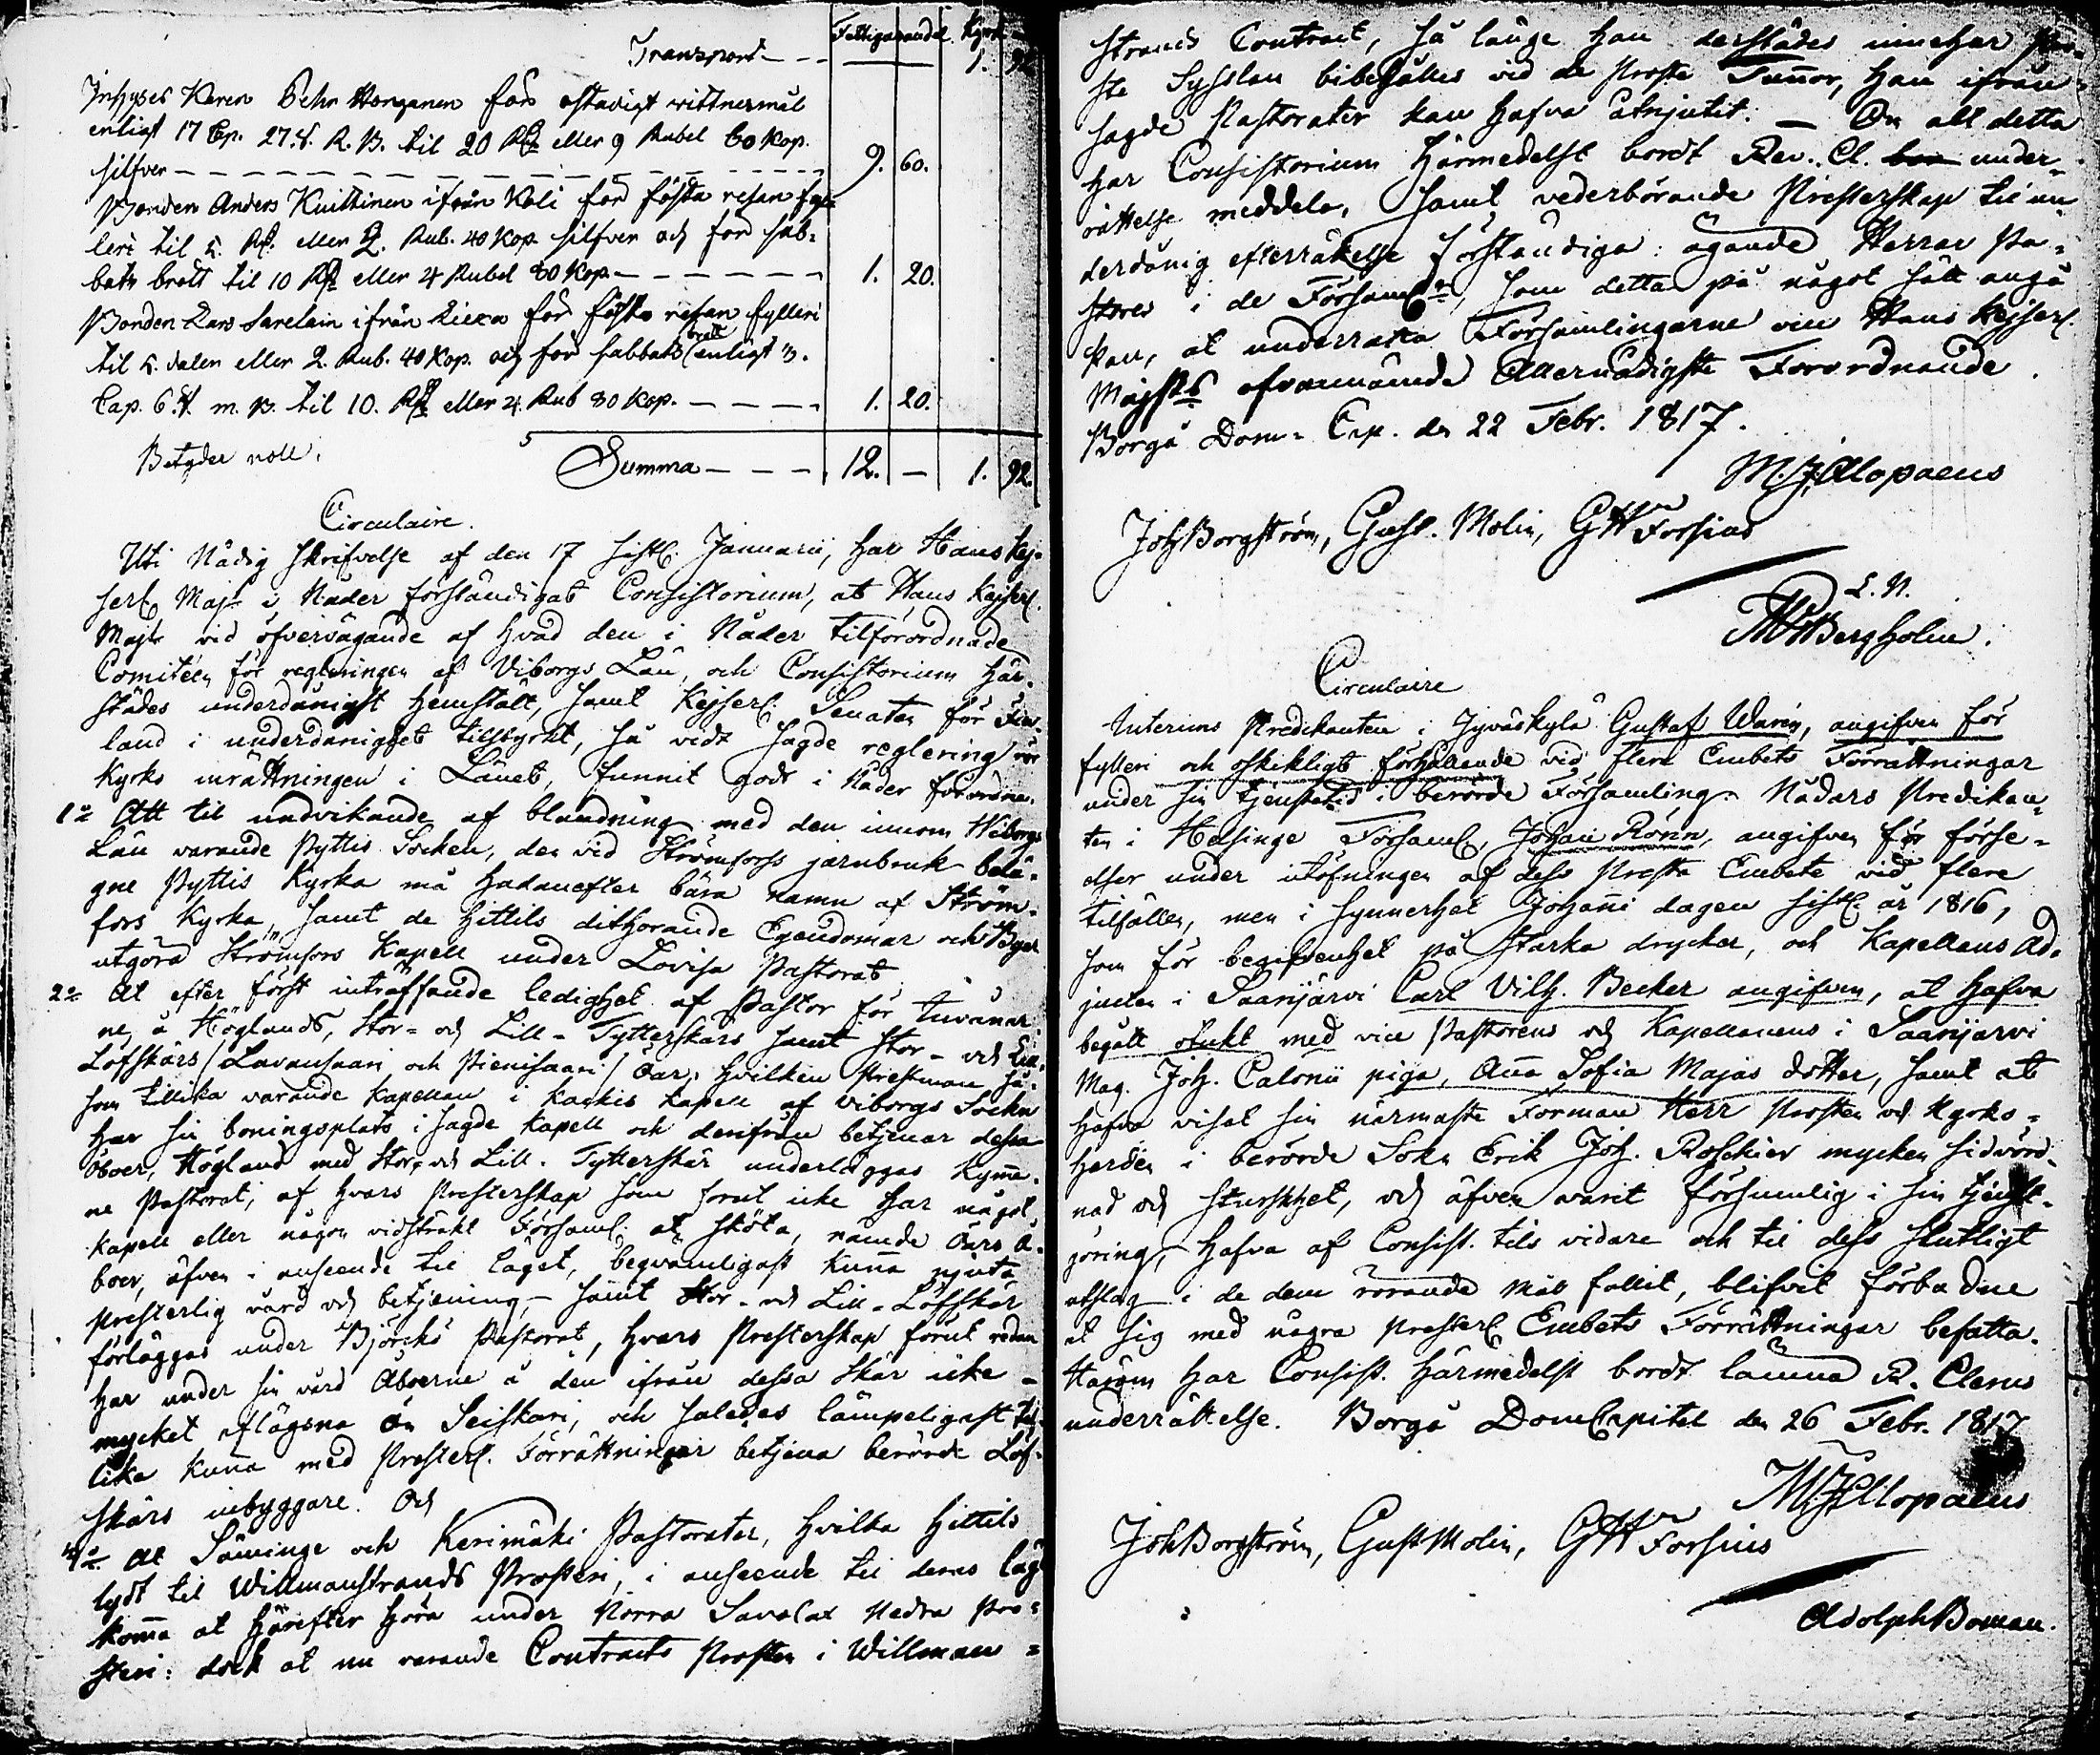 Fattigas andel. Kyrk
Transport - - - 1. 92
Inhyses Karen Pehr Horganen för ostadigt vittnesmål
enligt 17 Cap. 27. §. R. B. til 20 Rd eller 9 Rubel 60 Kop.
silfver - - - - - - 9. 60.
Bonden Anders Kuittinen ifrån Koli for första resan fyl-
leri til 5. Rd. eller 2. Rub. 40 Kop. silfver och for sab-
bats brott til 10 Rd eller 4 Rubel 80 Kop. - - - - 1. 20.
Bonden Lars Sarelain ifrån Liexa för första resan fylleri
til 5. daler eller 2. Rub. 40 Kop. och for sabbats brott enligt 3.
Cap. 6. §. m. B. til 10. Rd eller 4. Rub 80 Kop. - - - 1. 20.
Betyder noll. Summa - - - 12. - 1. 92.
Circulaire.
Uti Nådig skrifvelse af den 17 sistl. Januarii, har Hans Kej-
serl. Majt i Nåder förständigat Consistorium, at Hans Kejserl.
Majt vid öfvervägande af hvad den i Nåder tilförordnade
Comitéen för regleringen af Viborgs Län, och Consistorium här-
städes underdånigst hemstält, samt Kejserl. Senaten för Fin-
land i underdånighet tillstyrkt, så vidt sagde reglering rör
Kyrko inrättningen i Länet, funnit godt i Nåder förordna.
1o Att til undvikande af blandning med den innom Wiborgs
Län varande Pyttis Socken, den vid Strömforss jernbruk belä-
gne Pyttis Kyrka må hädanefter bära namn af Ström-
fors Kyrka, samt de hittils dithörande Egendomar och Byar
utgöra Strömfors Kapell under Lovisa Pastorat.
2o At efter först inträffande ledighet af Pastor för Invånar-
ne å Höglands, Stor- och Lill-Tytterskärs samt Stor- och Lill-
Löfskärs /Lavansaari och Pienisaari/ Öar, hvilken Prestman så-
som tillika varande Kapellan i Kaskis Kapell af Viborgs Sockn
har sin boningsplats i sagde Kapell och derifrån betjenar dessa
Öboer, Högland med Stor- och Lill-Tytterskär underlägges Kyme-
ne Pastorat, af hvars Presterskap som förut icke har något
Kapell eller någon vidsträkt Församl. at sköta, nämde Öars Å-
boer, äfven i anseende til läget, beqvämligast kunna njuta
Presterlig vård och betjening, - samt Stor- och Lill-Löfskär
förlägges under Björkö Pastorat, hvars Presterskap förut redan
har under sin vård Åboerne å den ifrån dessa Skär icke
mycket aflägsna ön Seiskari, och således lämpeligast til-
lika kunna med Presterl. Förrättningar betjena berörde Löf-
skärs inbyggare. Och
4o At Säminge och Kerimäki Pastorater, hvilka hittils
lydt til Willmanstrands Prosteri, i anseende til deras läge
komma at härefter höra under Norra Savolax Nedra Pro-
steri: dock at nu varande Contracts Prosten i Willman-
strands Contract, så länge han derstädes innehar Pro-
ste Sysslan bibehålles vid de Proste Tunnor, han ifrån
sagde Pastorater kan hafva åtnjutit. - Om alt detta
har Consistorium härmedelst bordt Rev. Cl. under-
rättelse meddela, samt vederbörande Presterskap til un-
derdånig efterrättelse förständiga: ägande Herrar Pa-
stores i de Församl., som detta på något sätt angå
kan, at underrätta Församlingarne om Hans Kejserl.
Majsts ofvannämnde Allernådigste Förordnande.
Borgå Dom-Cap. den 22 Febr. 1817.
M. J. Alopaeus
Joh Borgström, Gust. Molin, GW Forsius
L. N.
Bergholm.
Circulaire
Interims Predikanten i Jyväskylä Gustaf Warén, angifven för
fylleri och oskikligt förhållande vid flere Embets Förrättningar
under sin tjenstetid i berörde Församling. Nådårs Predikan-
ten i Helsinge Församl., Johan Rönn, angifven för förse-
elser under utöfningen af dess Presta Embete vid flere
tilfällen, men i synnerhet Johanni dagen sistl. år 1816,
som för begifvenhet på starka drycker, och Kapellans Ad-
juncten i Saarijärvi Carl Vilh. Becker angifven, at hafva
begått otukt med vice Pastorens och Kapellanens i Saarijärvi
Mag. Joh. Calonii piga, Anna Sofia Majas dotter, samt at
hafva visat sin närmaste Förman Herr Prosten och Kyrko-
herden i berörde Sokn Erik Joh. Roschier mycken sidvörd-
nad och sturskhet, och äfven varit försumlig i sin tjenst-
göring, - hafva af Consist. tils vidare och til dess slutligt
utslag i de dem rörande mål fallit, blifvit förbudne
at sig med några Presterl. Embets Förrättningar befatta.
Härom har Consist. härmedelst bordt lämna R. Clerus
underrättelse. Borgå DomCapitel den 26 Febr. 1817
M J Alopaeus
Joh Borgström, Gust Molin, GW Forsius
Adolph Boman.